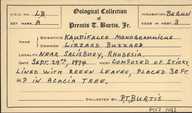 Oological Collection
of
Prentis T. Burtis, Jr.
LB
SET MARK A
Kaupifalco Monogrammicus
COMMON NAME Lizzard Buzzard
LOCALITY Near Salisbury, Rhodesia
DATE Sept. 29th, 1974 NEST Composed of sticks
lined with green leaves, placed 30 ft
up in acacia tree.
COLLECTED BY P.T. Burtis